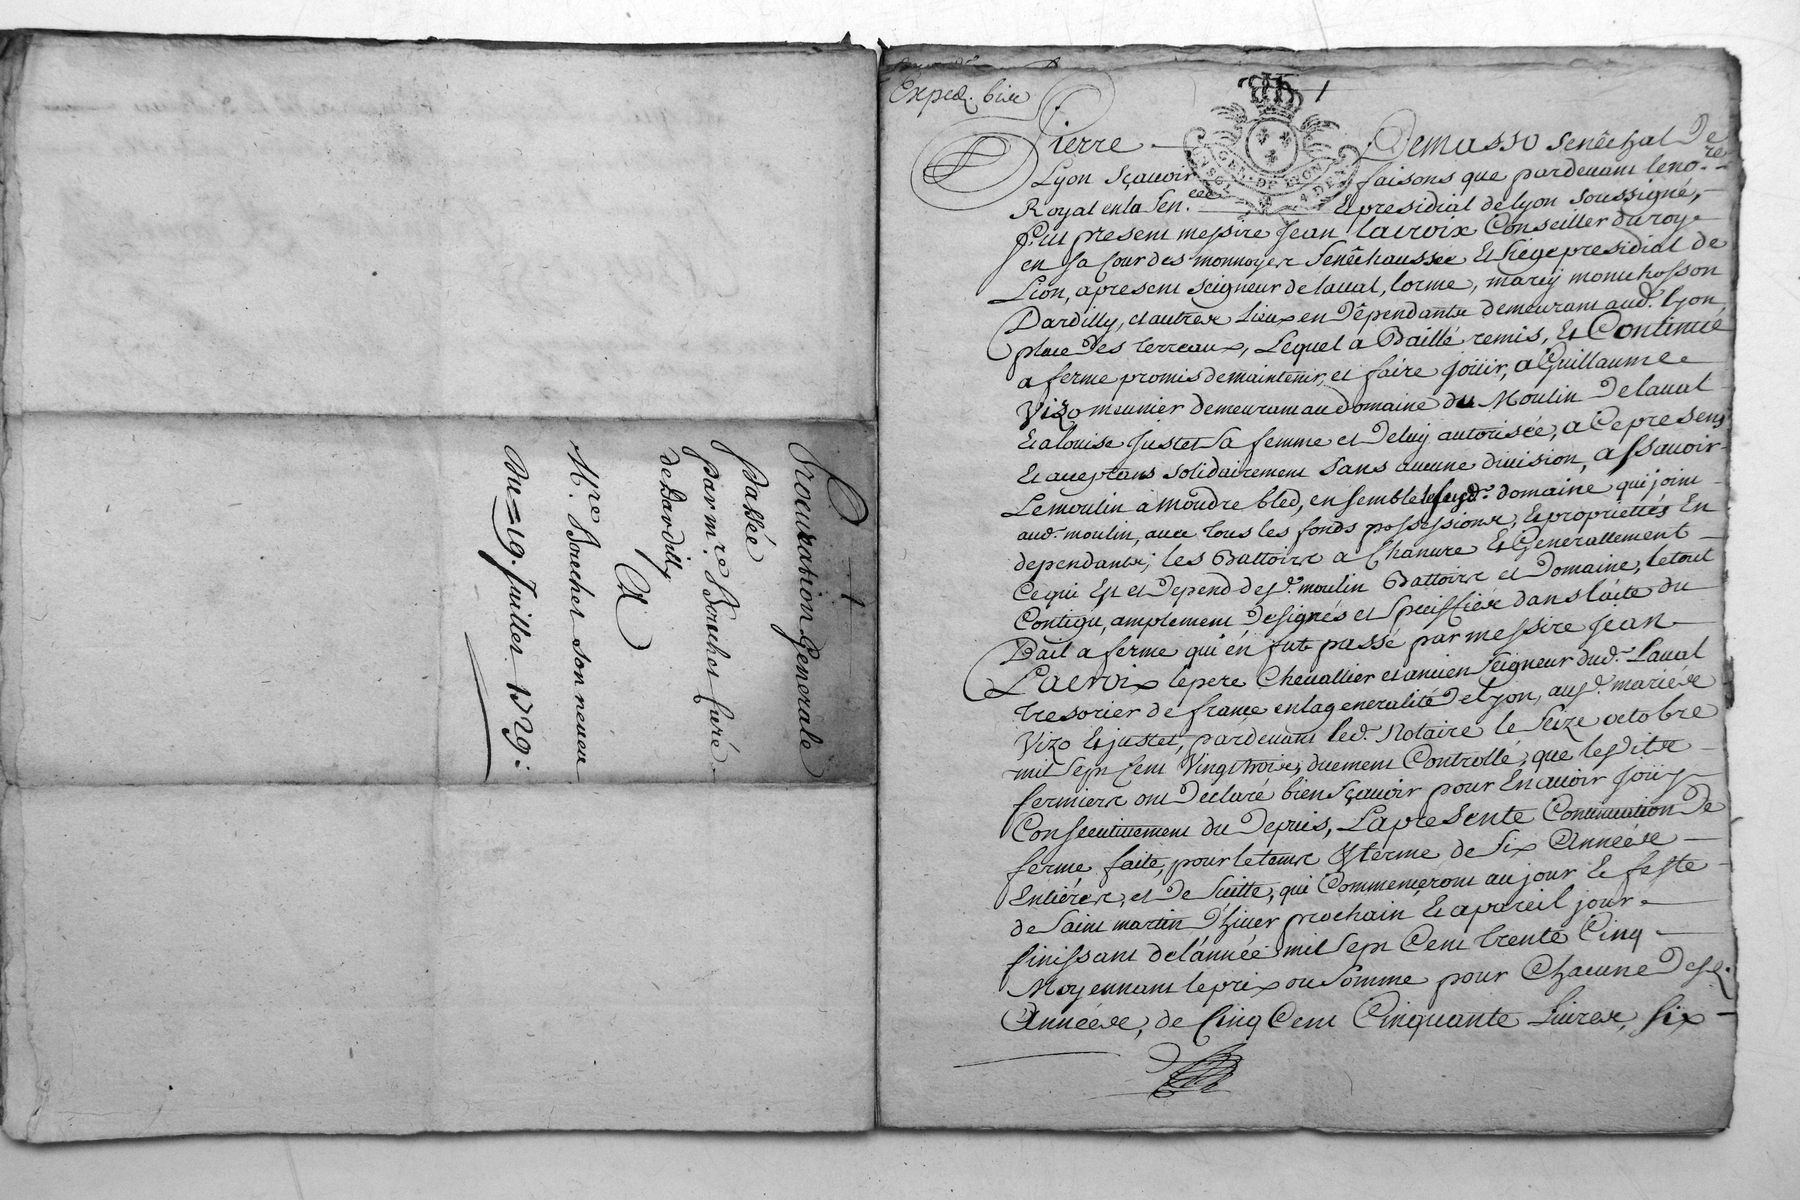 Procuration generale
passée
par m.re Bouchet curé
de dardilly
A
M.re Bouchet son neveu
Du = 19. Juillet 1729 :
1
Exped. bis
Pierre Demasso Senêchal De
Lyon Sçavoir faisons que pardevant le no.re
Royal en la Sen.cée & presidial de lyon soussigné,
fut present messire Jean lacroix Conseiller du roy
en sa Cour des monnoyes Senêchaussée & siege presidial de
Lion, apresent seigneur de laval, lorme, marcy montchosson
Dardilly, et autres Lieux en Dêpendants demeurant aud. lyon
place des terreaux, Lequel a Baillé remis, & Continué
a ferme promis demaintenir, et faire joüir, a Guillaume
Vizo meunier demeurant au domaine du Moulin De laval
& a louise Justet sa femme et De luy autorisée, a Ce presens
& acceptans solidairement sans aucune division, assavoir
Le moulin a moudre bled, ensemble le susd. domaine qui joint
aud. moulin, avec tous les fonds possessions, & proprietés En
dependants; les Battoirs a Chanvre & Generallement
Ce qui Est et Depend desd. moulin Battoirs et Domaine, le tout
Contigu, amplement Designés et speciffiés dans l'acte du
Bail a ferme qui en fut passé par messire Jean
Lacroix le pere Chevallier et ancien seigneur dud. Laval
tresorier de france en la generalité De lyon, ausd. mariés
Vizo & justet, pardevant led. Notaire le seize octobre
mil sept Cent Vingt trois, duement Controllé, que lesdits
fermiers ont Declaré bien sçavoir pour En avoir joüy
Consecutivement du Depuis, La presente Continuation De
ferme faite, pour le tems & terme de six Années
Entières, et De suitte, qui Commenceront au jour & feste
de saint martin D'hiver prochain & a pareil jour
finissant de l'année mil sept Cent trente Cinq
Moyennant le prix ou somme pour Chacune Desd.
Années, de Cinq Cent Cinquante Livres, six